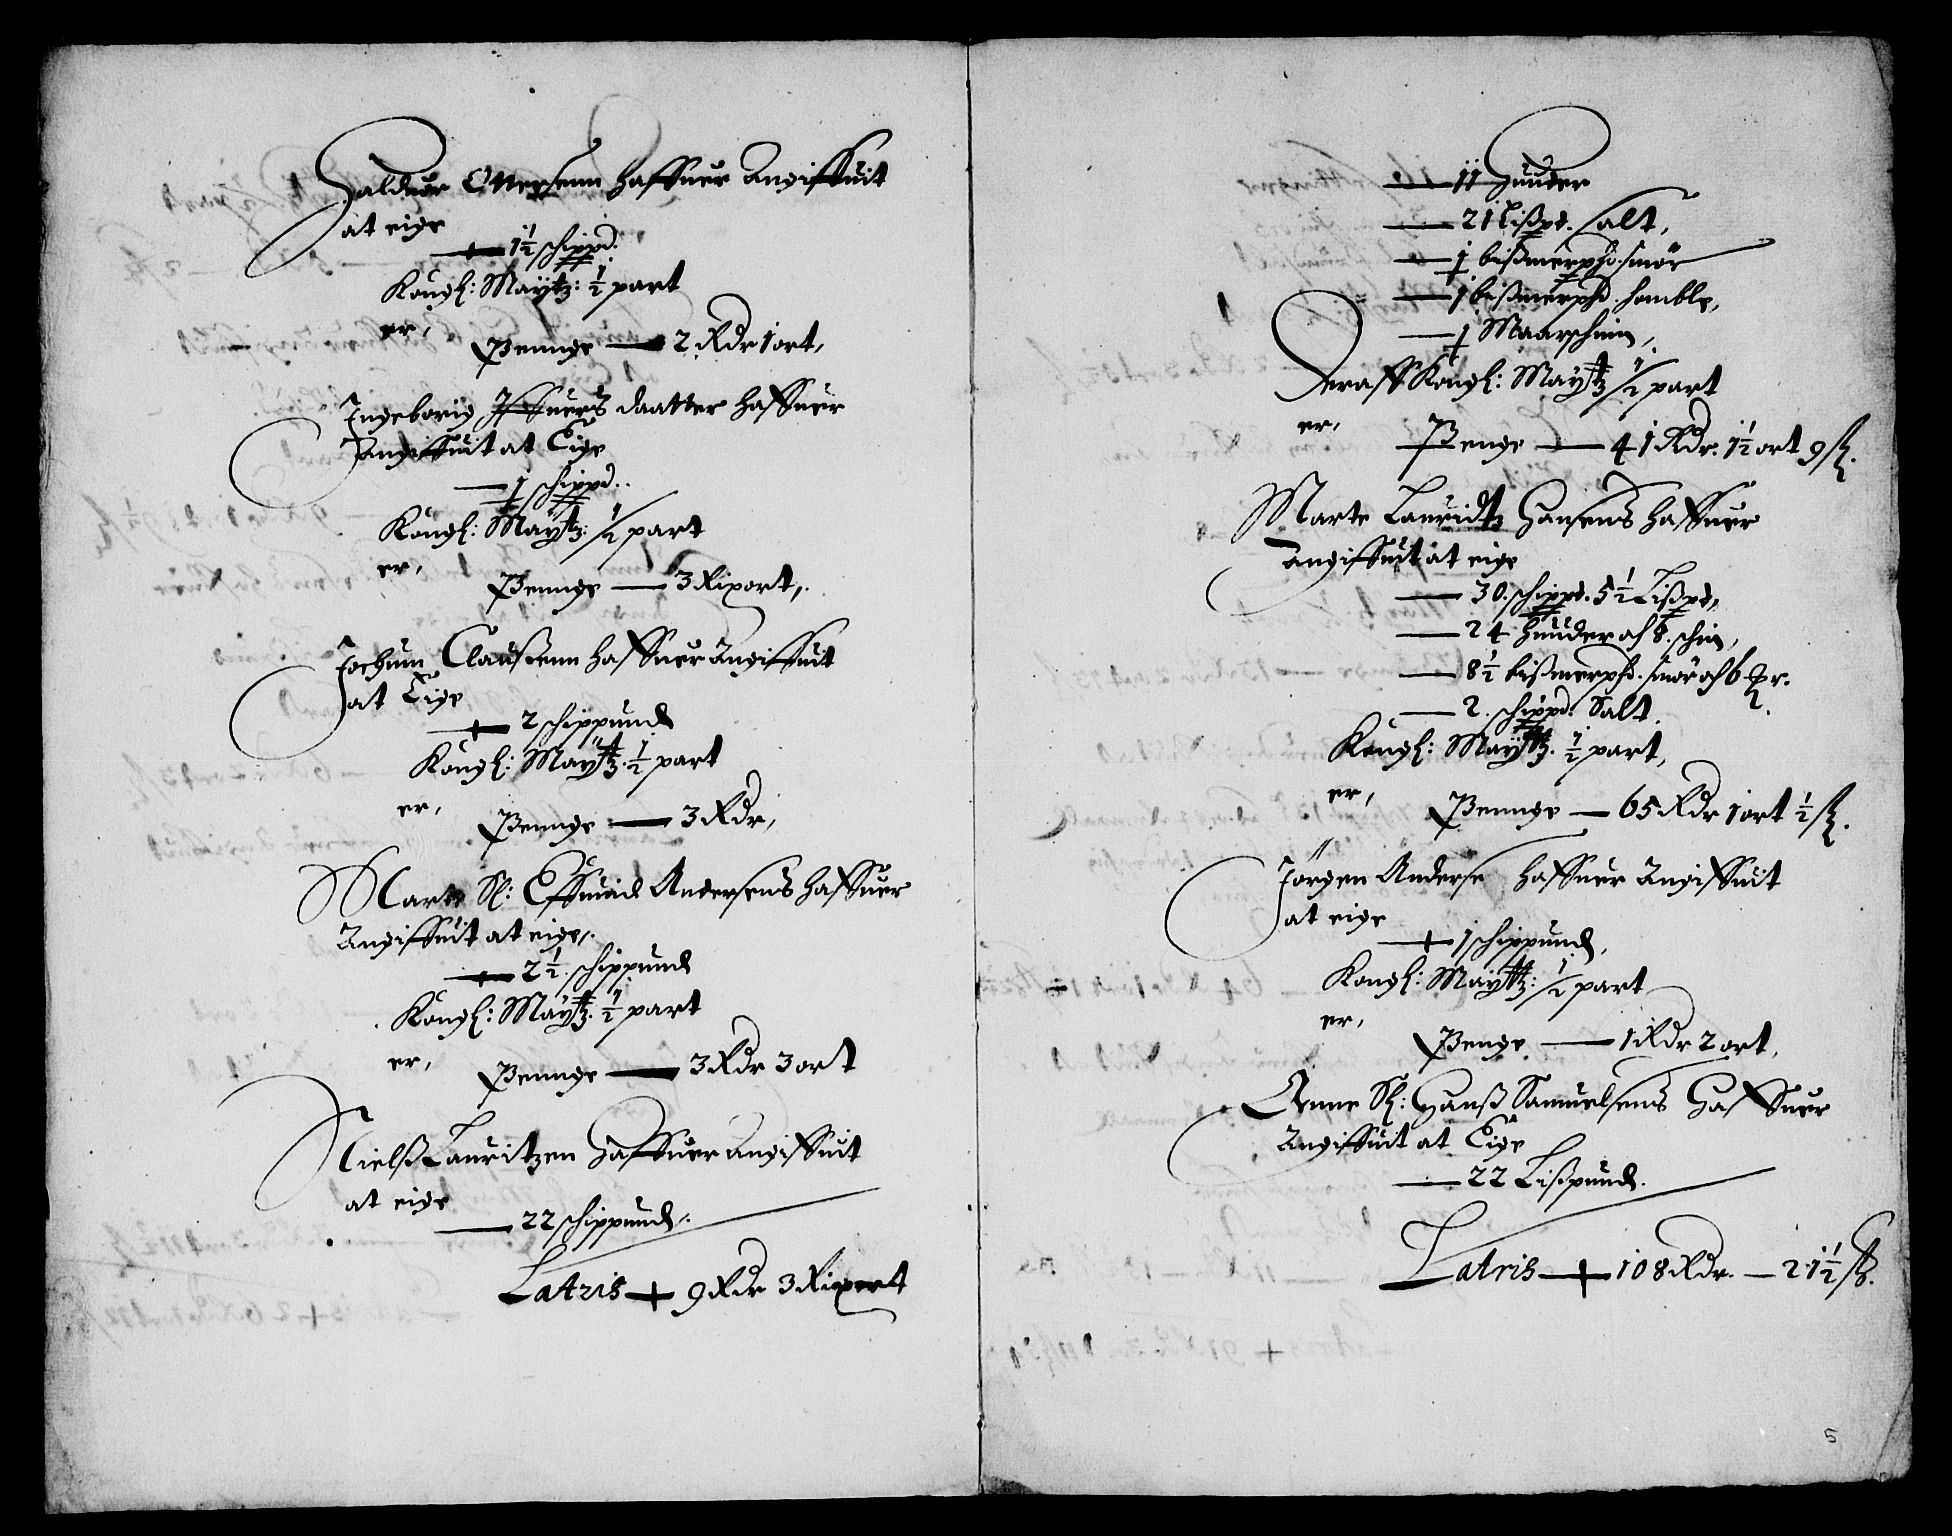 Halduor Ottersenn haffuer Angiffuit
at eige
1½ schippd.
Kongl: Maÿtz: ½ part
er,
Penge 2 Rdr 1 ort,
Ingeborig Iffuers daatter haffuer
Angiffuit at Eige
1 schippd.
Kongl: Maÿtz: ½ part
er,
Penge 3 Rixort,
Jochum Claußenn haffuer Angiffuit
at Eige
2 schippund
Kongl: Maÿtz. ½ part
er,
Penge 3 Rdr,
Marte Sl: Effuind Andersens haffuer
Angiffuit at eige,
2½ schippund
Kongl: Maÿtz. ½ part
er,
Penge 3 Rdr 3 ort
Nielß Lauritzen haffuer angiffuit
at eige
22 schippund.
Latris 9 Rdr 3 Rixort
11 Huuder
21 Lißpd. salt,
1 bißmerphd. smør
1 bißmerphd. homble,
1 Maarschinn,
Deraff Kongl: Maÿtz ½ part
er,
Penge 41 Rdr. 1½ ort 9 ß.
Marte Lauridtz Hansens haffuer
angiffuit at eige
30. schippd. 5½ Lißpd,
24 huuder af 8. schin,
8½ bißmerphd. smør af 6
2. schippd. Salt.
Kongl: Maÿtz. ½ part,
er,
Penge 65 Rdr 1 ort ½ ß.
Jörgen Anderse haffuer Angiffuit
at eige
1 schippund,
Kongl: Maÿtz: ½ part
er,
Penge 1 Rdr 2 ort,
Anne Sl: Hanß Samuelsens Haffuer
Angiffuit at Eige
22 Lißpund.
Latris 108 Rdr. 21½ ß.
5